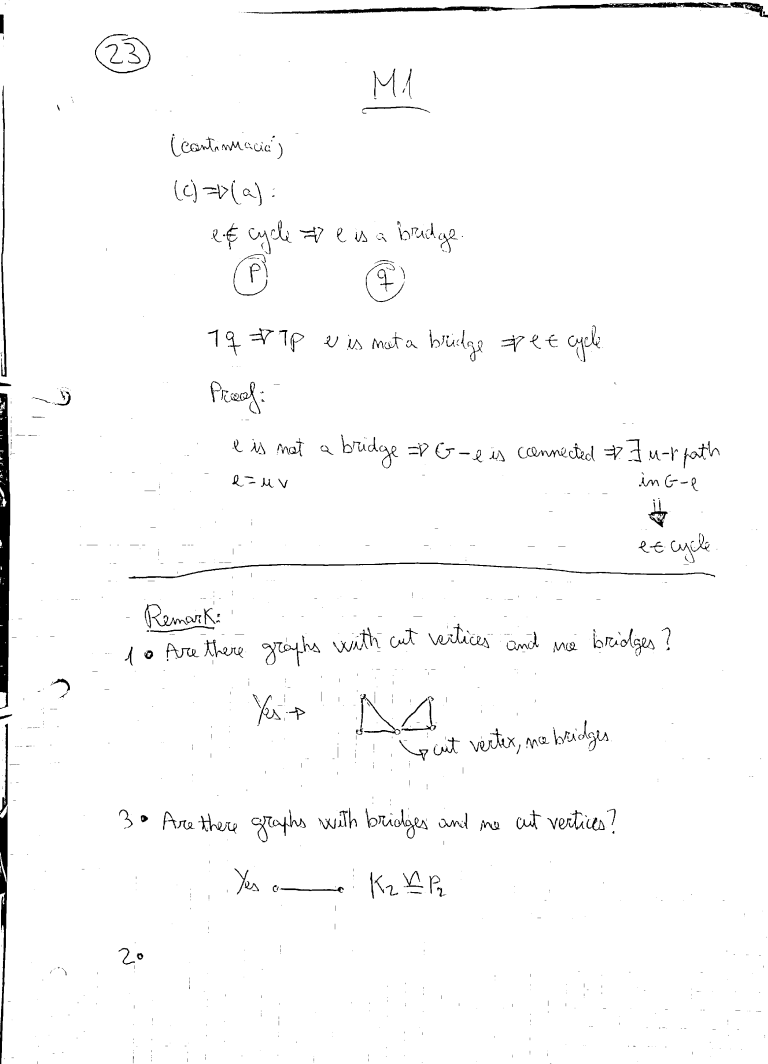 23
M1
(continuació)
(c) ⇒ (a):
e ∉ cycle ⇒ e is a bridge.
p q
¬q ⇒ ¬p e is not a bridge ⇒ e ∈ cycle
Proof:
e is not a bridge ⇒ G-e is connected ⇒ ∃ u-v path
e = uv in G-e
⇓
e ∈ cycle
Remark:
1 • Are there graphs with cut vertices and no bridges?
Yes →
cut vertex, no bridges
3 • Are there graphs with bridges and no cut vertices?
Yes K₂ ≅ P₂
2•